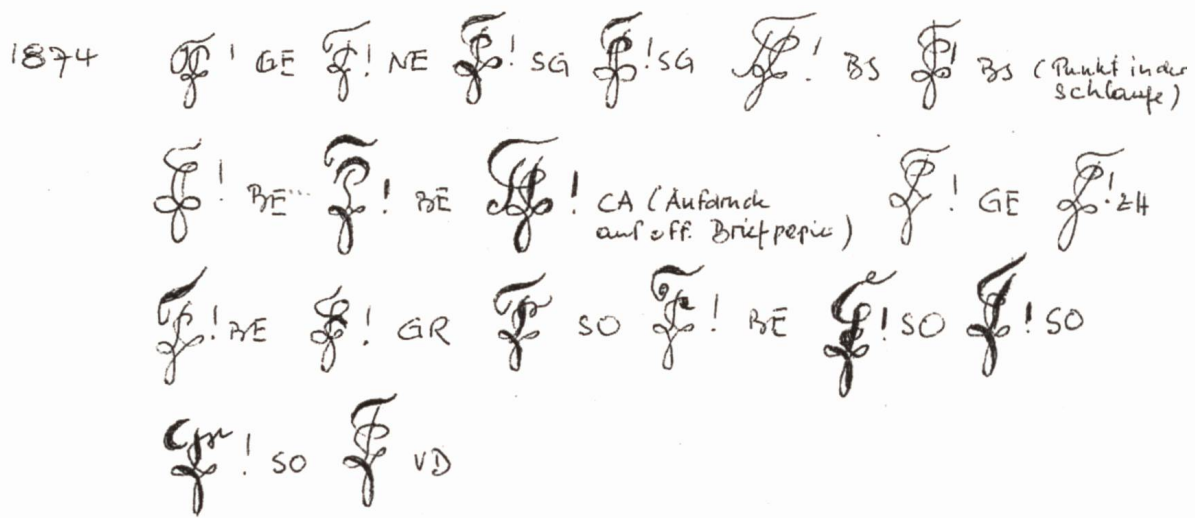 1874 ! GE ! NE ! SG ! SG ! BS ! BS (Punkt in der
Schlaufe)
! BE ! BE ! CA (Aufdruck ! GE ! ZH
auf off. Briefpapier)
! BE ! GR SO ! BE ! SO ! SO
! SO VD